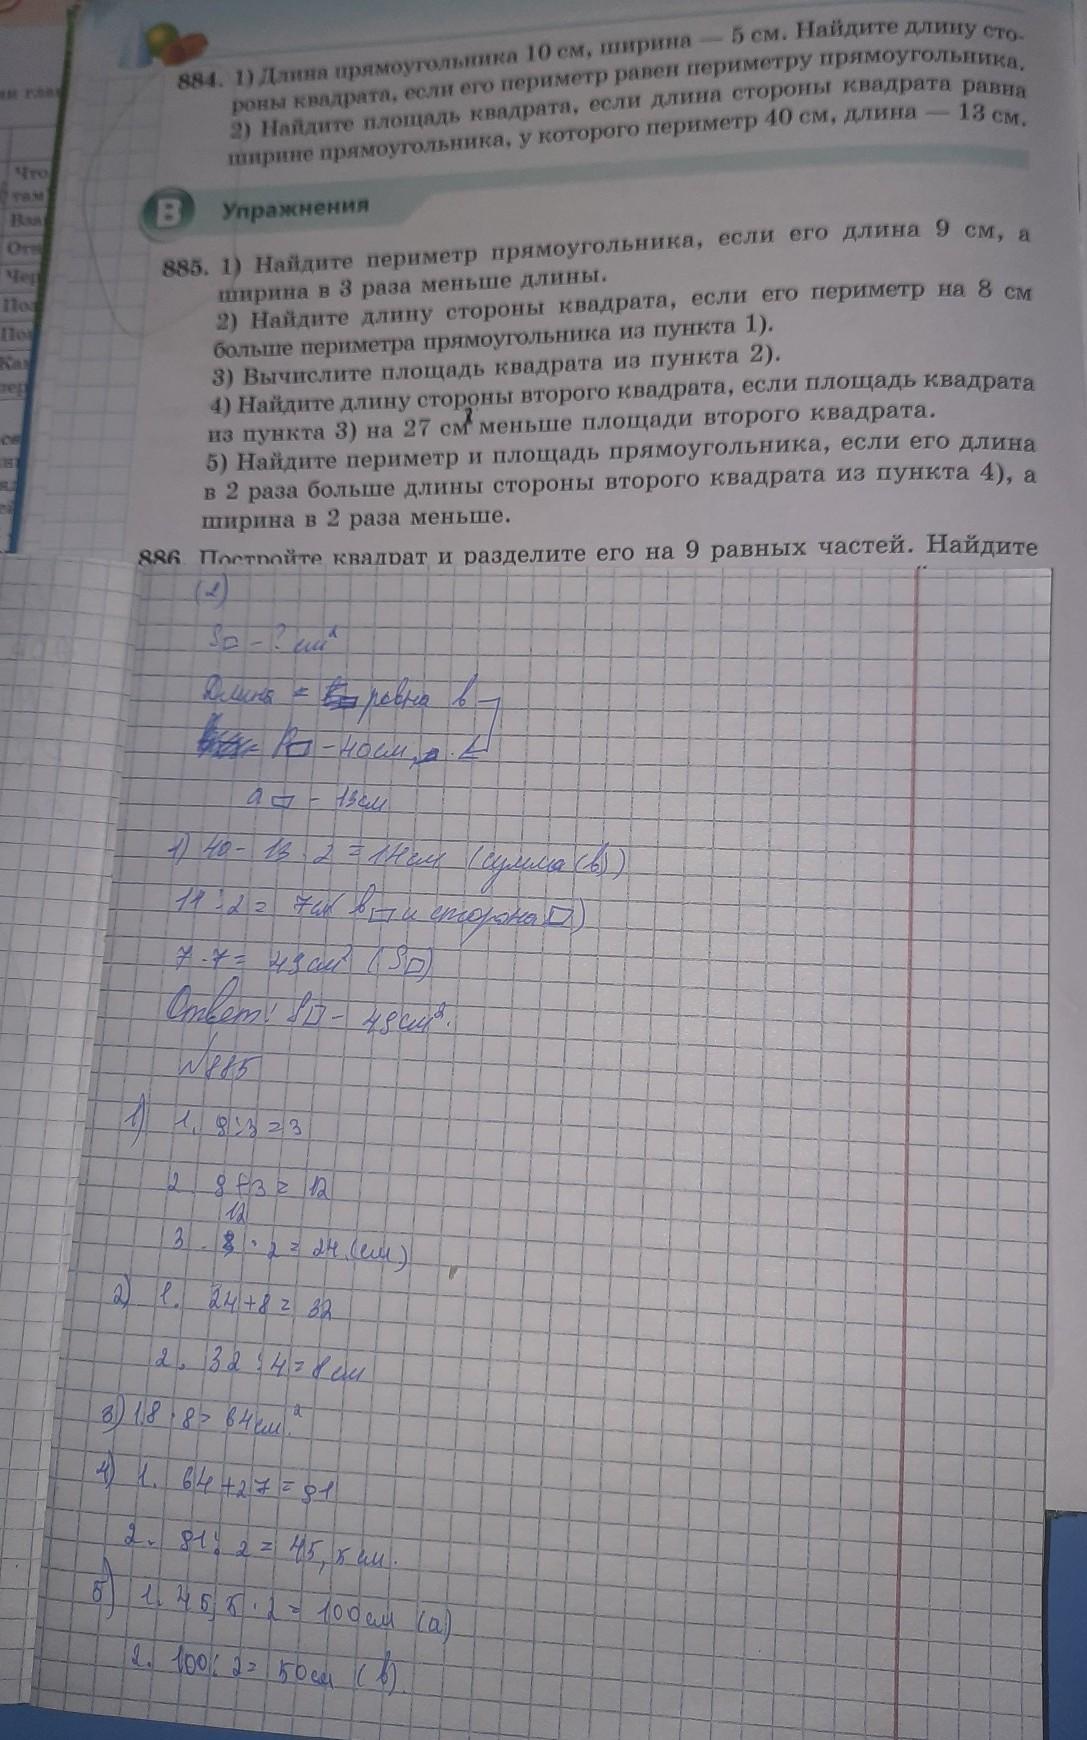 884. 1) Длина прямоугольника 10 см, ширина — 5 см. Найдите длину сто-
роны квадрата, если его периметр равен периметру прямоугольника.
2) Найдите площадь квадрата, если длина стороны квадрата равна
ширине прямоугольника, у которого периметр 40 см, длина — 13 см.
В Упражнения
885. 1) Найдите периметр прямоугольника, если его длина 9 см, а
ширина в 3 раза меньше длины.
2) Найдите длину стороны квадрата, если его периметр на 8 см
больше периметра прямоугольника из пункта 1).
3) Вычислите площадь квадрата из пункта 2).
4) Найдите длину стороны второго квадрата, если площадь квадрата
из пункта 3) на 27 см² меньше площади второго квадрата.
5) Найдите периметр и площадь прямоугольника, если его длина
в 2 раза больше длины стороны второго квадрата из пункта 4), а
ширина в 2 раза меньше.
886. Постройте квадрат и разделите его на 9 равных частей. Найдите
(2)
S□ - ? см²
Длина = равна в
P▭ - 40 см,
a▭ - 13 см
1) 40 - 13 · 2 = 14 см (сумма (в))
14 : 2 = 7 см (в▭ и сторона □)
7 · 7 = 49 см² (S□)
Ответ: S□ - 49 см².
№885
1) 1. 9 : 3 = 3
2 9 + 3 = 12
12
3 · 2 = 24 (см)
2) 1. 24 + 8 = 32
2. 32 : 4 = 8 см
3) 1 8 · 8 = 64 см²
4) 1. 64 + 27 = 91
2. 91 : 2 = 45,5 см.
5) 1. 45,5 · 2 = 100 см (а)
2. 100 : 2 = 50 см (в).
Что
там
Вза
Отв
Чер
Пог
Пов
Как
пер